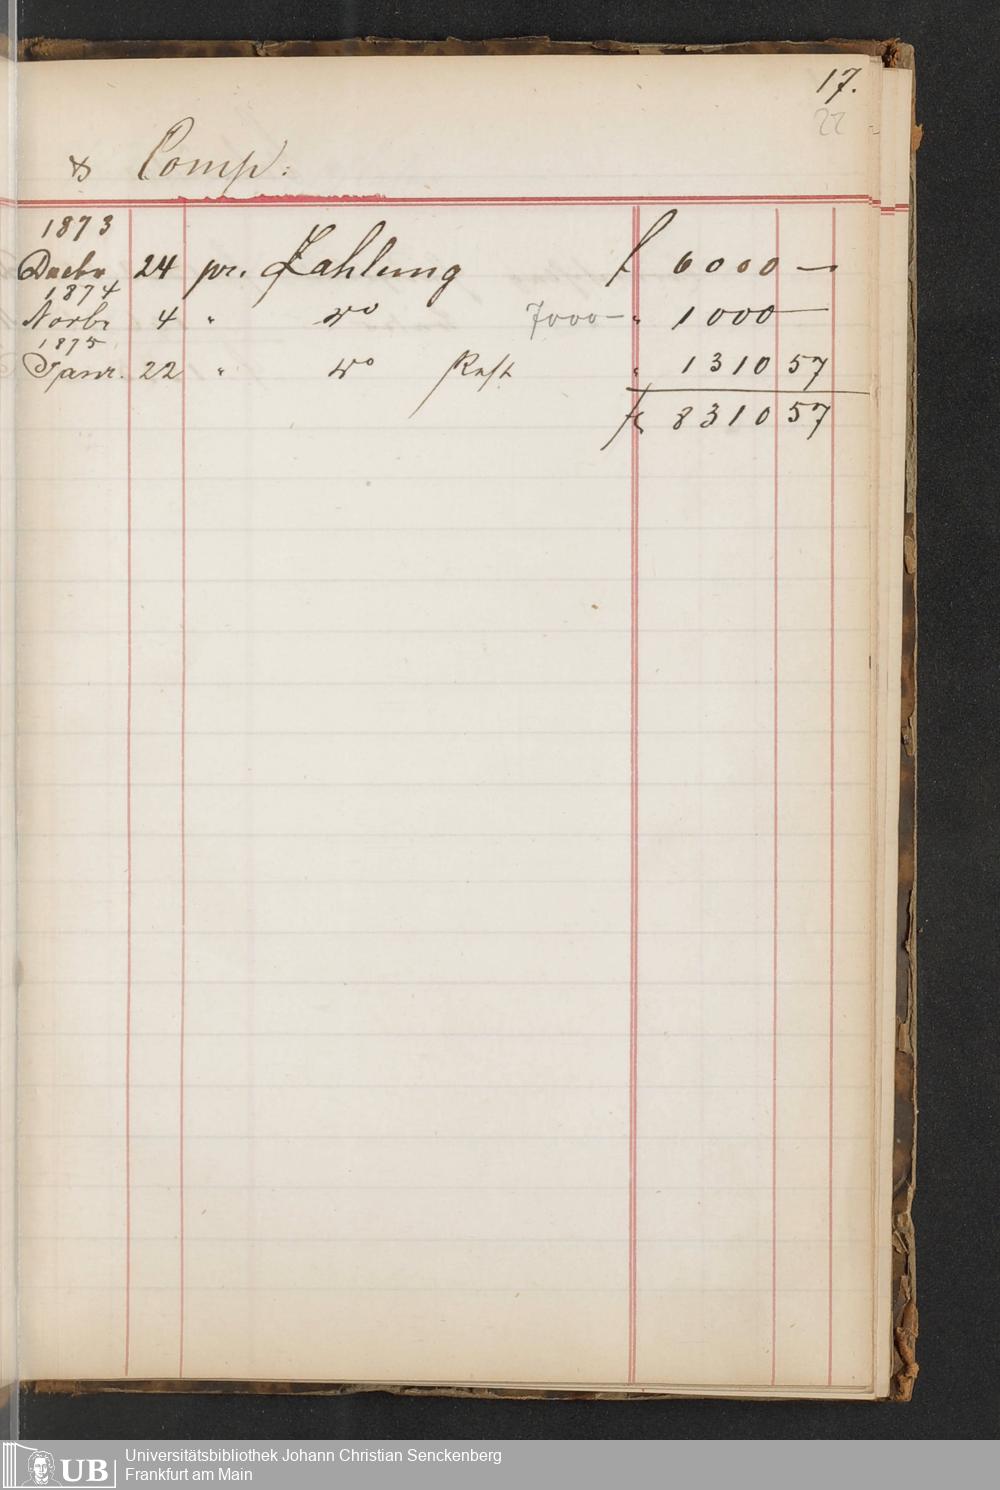 17.
22
& Comp:
1873
Decbr 24 pr. Zahlung f 6000 —
1874
Novbr 4 " do 7000 — " 1000 —
1875
Janr. 22 " do Rest " 1310 57
f 8310 57
UB Universitätsbibliothek Johann Christian Senckenberg
Frankfurt am Main